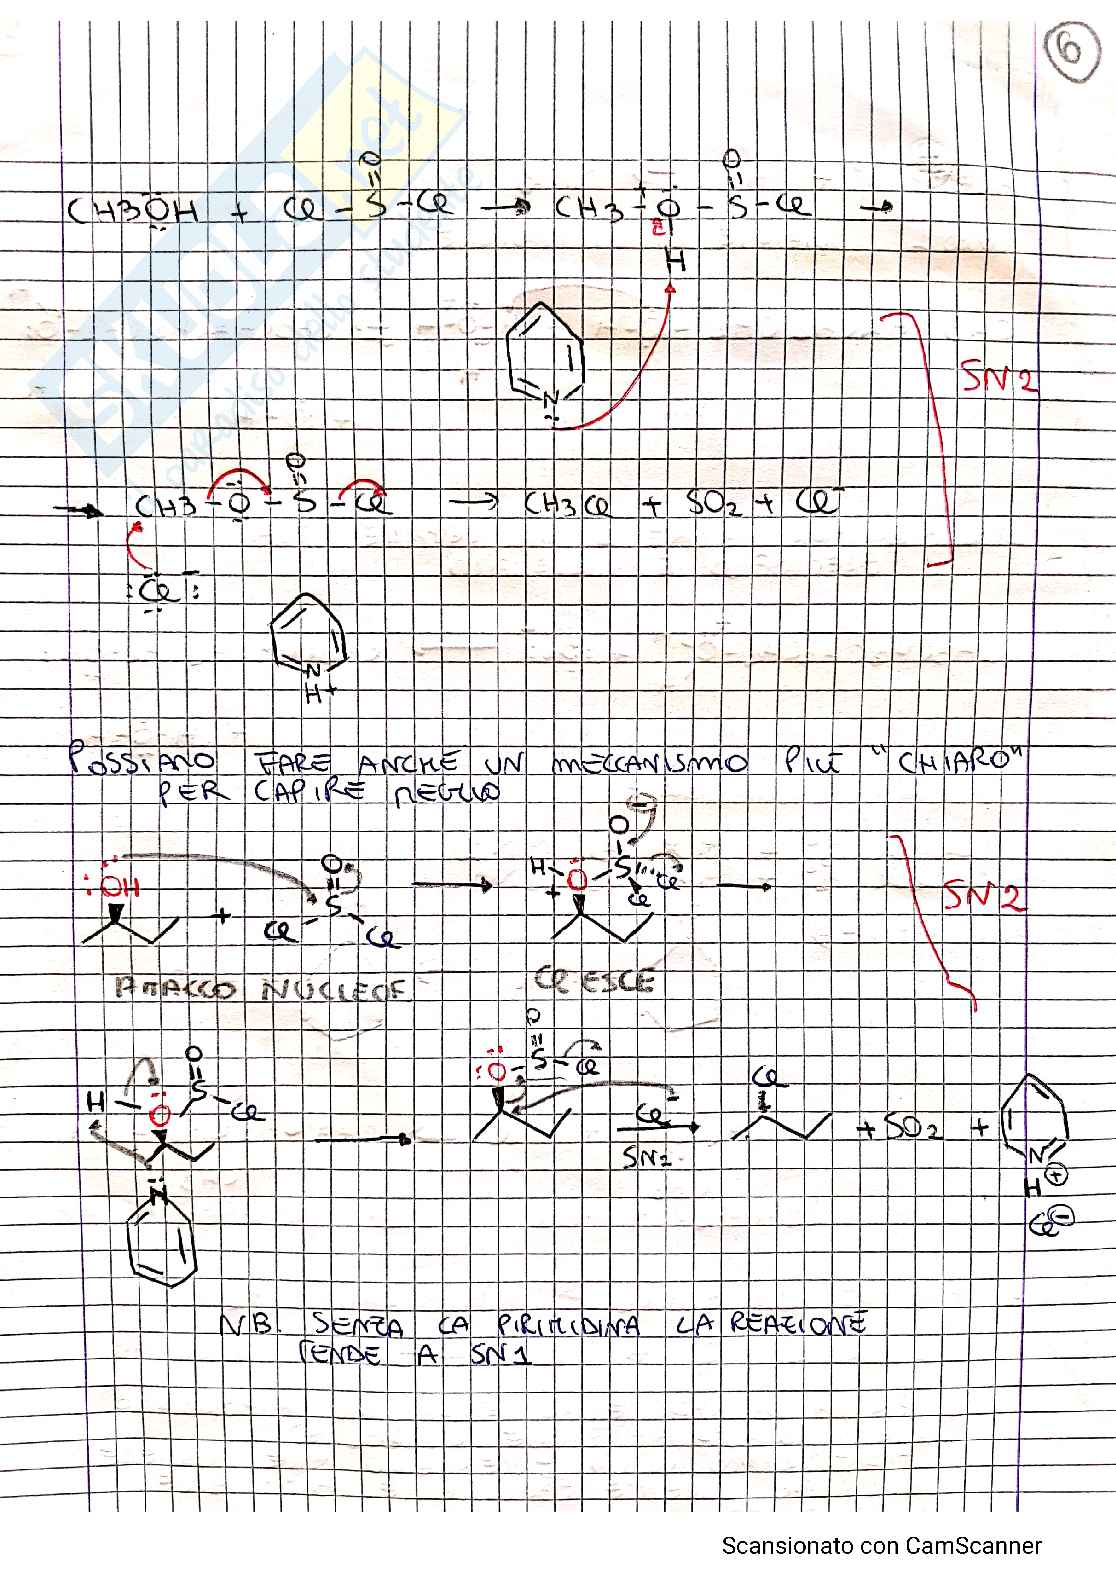 6
O O
CH3ÖH + Cl - S - Cl → CH3 - O - S - Cl →
+
H
N
SN2
O
→ CH3 - O - S - Cl → CH3Cl + SO2 + Cl-
:Cl:-
N
H+
POSSIAMO FARE ANCHE UN MECCANISMO PIÙ "CHIARO"
PER CAPIRE MEGLIO
:OH + O S Cl Cl → H O + S O - Cl Cl →
SN2
ATTACCO NUCLEOF Cl ESCE
H O S O Cl → :O S O Cl Cl- → Cl + SO2 +
SN2
N N
H +
Cl -
N.B. SENZA LA PIRIMIDINA LA REAZIONE
TENDE A SN1
Skuola.net
Scansionato con CamScanner